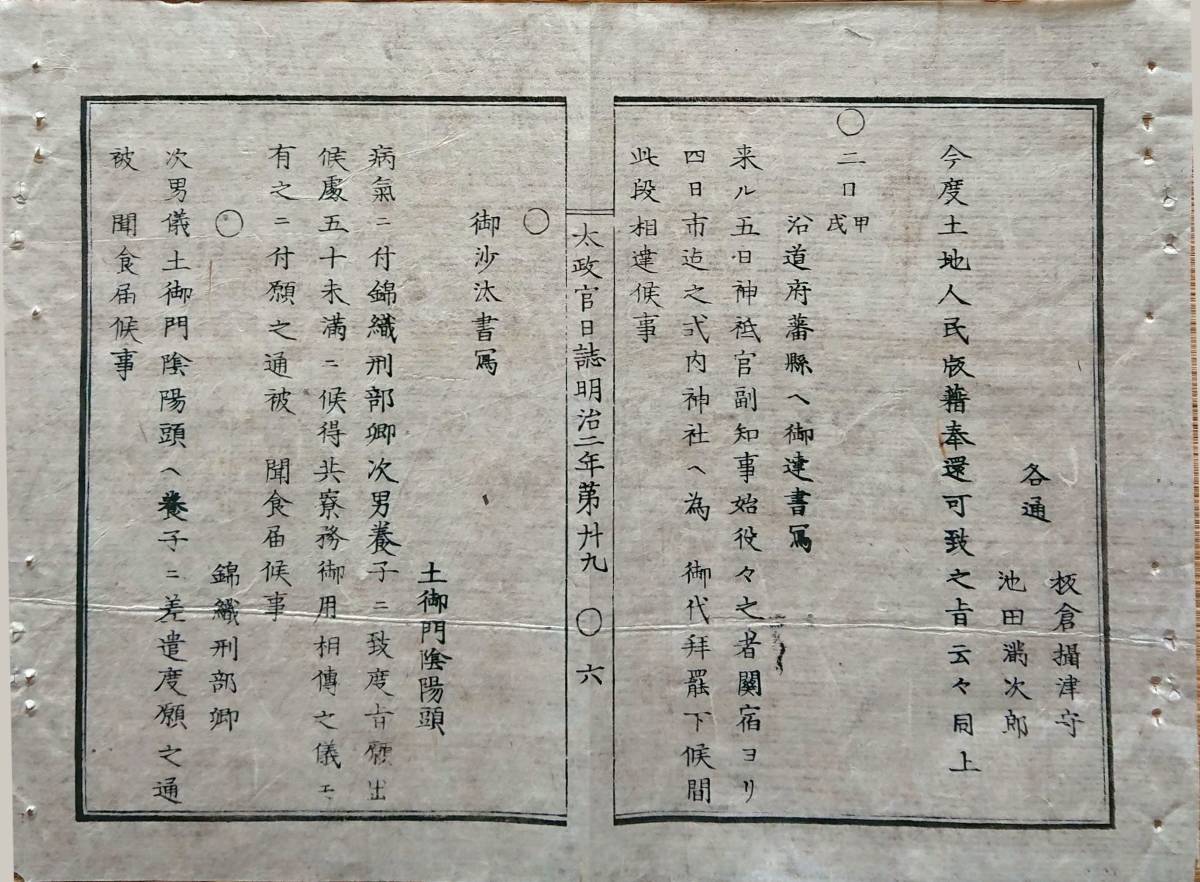 板倉攝津守
各通
池田滿次郎
今度土地人民版藉奉還可致之旨云々同上
○二日甲戌
沿道府藩縣ヘ御達書寫
来ル五日神祗官副知事始役々之者關宿ヨリ
四日市迠之式内神社ヘ為 御代拜罷下候間
此段相達候事
太政官日誌明治二年第卅九 ○ 六
○
御沙汰書寫
土御門陰陽頭
病氣ニ付錦織刑部卿次男養子ニ致度旨願出
候處五十未満ニ候得共寮務御用相傳之儀モ
有之ニ付願之通被 聞食届候事
○ 錦織刑部卿
次男儀土御門陰陽頭ヘ養子ニ差遣度願之通
被 聞食届候事